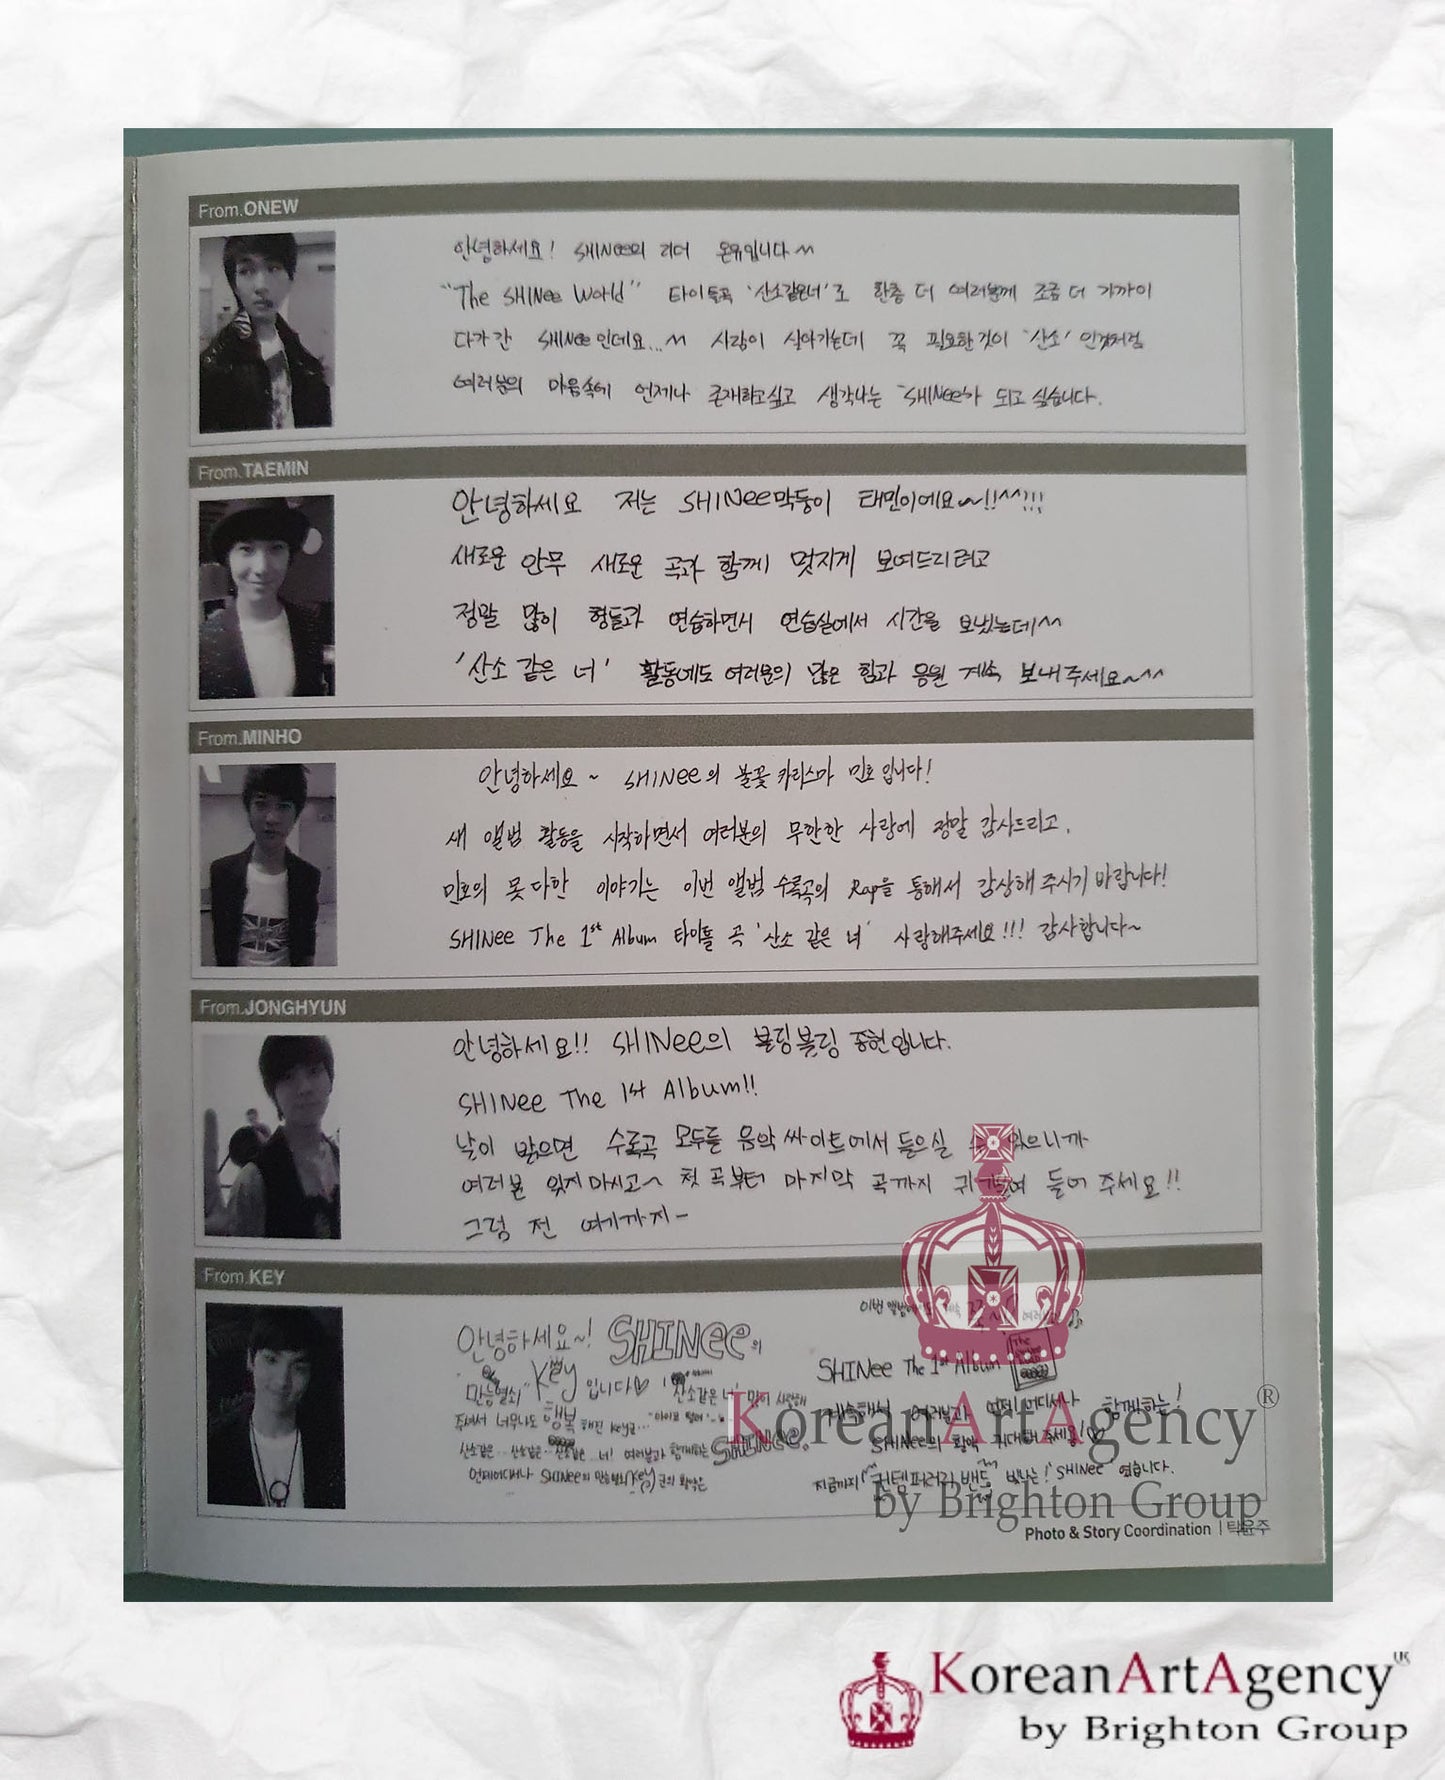 From.ONEW
안녕하세요! SHINee의 리더 온유입니다^^
"The SHINee World" 타이틀곡 '산소같은너'로 한층 더 여러분께 조금 더 가까이
다가간 SHINee인데요...^^ 사람이 살아가는데 꼭 필요한것이 '산소'인것처럼
여러분의 마음속에 언제나 존재하고싶고 생각나는 SHINee가 되고 싶습니다.
From.TAEMIN
안녕하세요 저는 SHINee막둥이 태민이에요~!!^^!!!
새로운 안무 새로운 곡과 함께 멋지게 보여드리려고
정말 많이 형들과 연습하면서 연습실에서 시간을 보냈는데^^
'산소 같은 너' 활동에도 여러분의 많은 힘과 응원 계속 보내주세요~^^
From.MINHO
안녕하세요~ SHINee의 불꽃 카리스마 민호입니다!
새 앨범 활동을 시작하면서 여러분의 무한한 사랑에 정말 감사드리고,
민호의 못다한 이야기는 이번 앨범 수록곡의 Rap을 통해서 감상해주시기 바랍니다!
SHINee The 1st Album 타이틀 곡 '산소 같은 너' 사랑해주세요!!! 감사합니다~
From.JONGHYUN
안녕하세요!! SHINee의 블링블링 종현입니다.
SHINee The 1st Album!!
날이 밝으면 수록곡 모두들 음악싸이트에서 들으실 있으니까
여러분 잊지마시고~ 첫 곡부터 마지막 곡까지 귀 들어 주세요!!
그럼 전 여기까지-
From.KEY
안녕하세요~! SHINee의
"만능열쇠" Key입니다♡ '산소같은너' 많이 사랑해
주셔서 너무나도 행복해진 key군...
산소같은... 산소같은... 산소같은... 너! 여러분과 함께하는 SHINee.
언제어디서나 SHINee의 만능열쇠(Key)군의 활약은
이번 앨범 계속
SHINee The 1st Album
여러분과 언제! 어디서나 함께하는!
SHINee의 활약 기대해주세용!♡
지금까지! 컨템퍼러리 밴드 빛나는! SHINee 였습니다.
KoreanArtAgency®
by Brighton Group
Photo & Story Coordination | 탁윤주
KoreanArtAgency UK
by Brighton Group